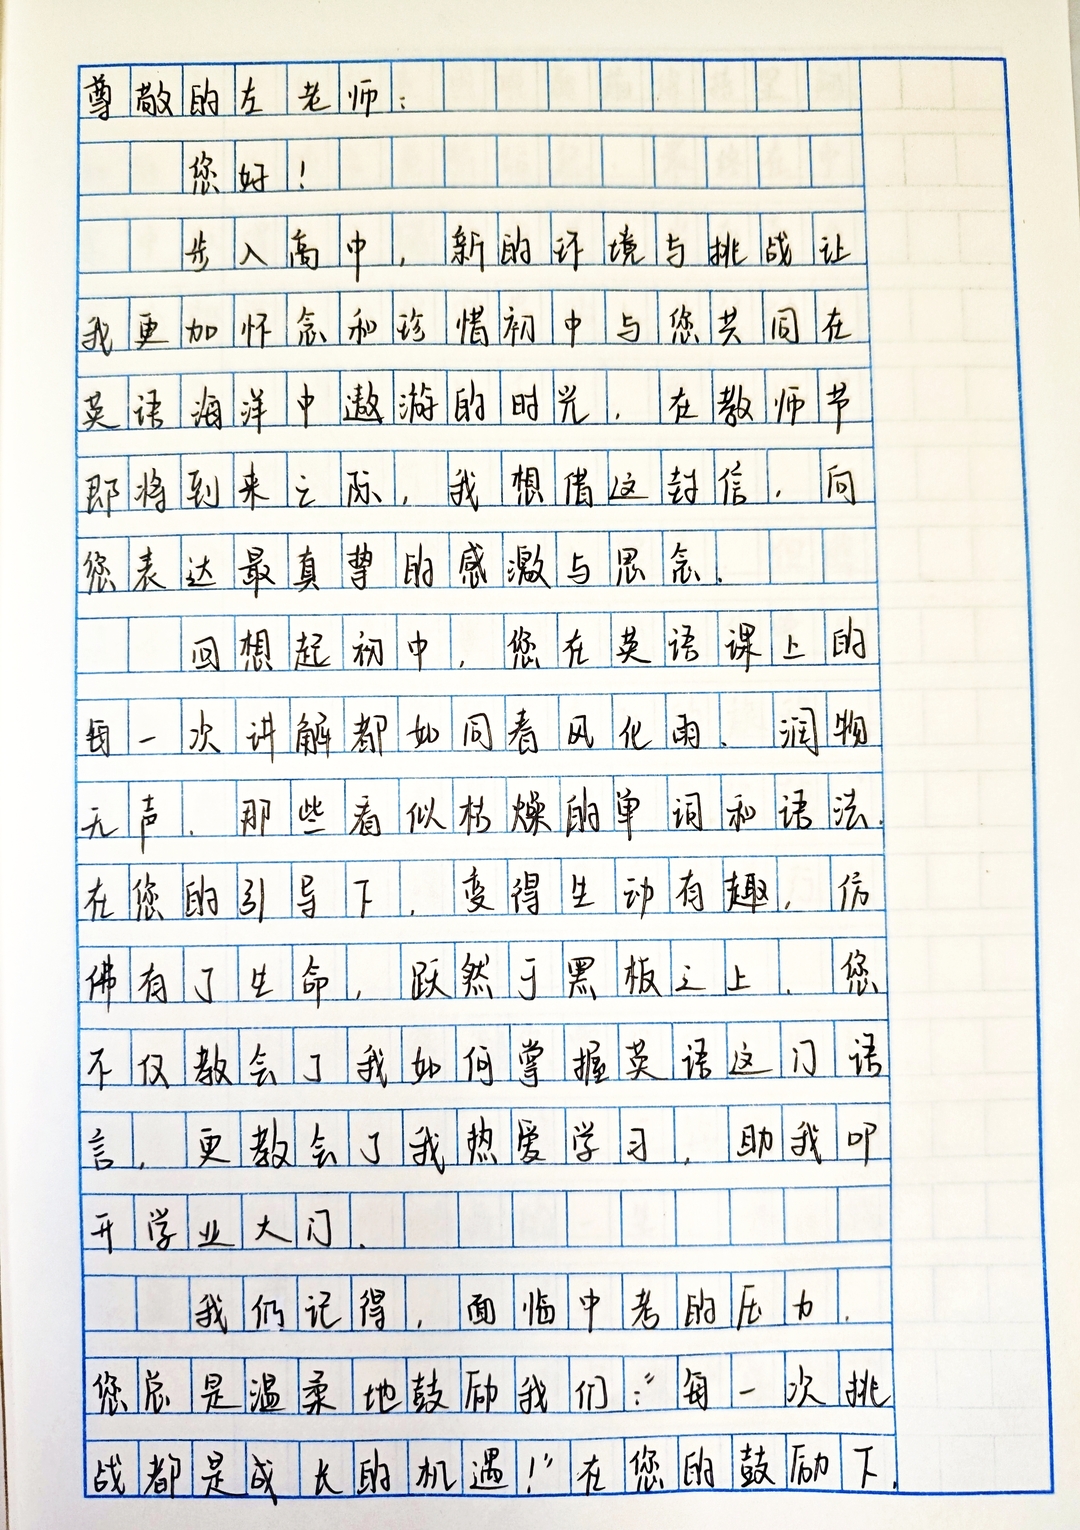 尊敬的左老师：
您好！
步入高中，新的环境与挑战让
我更加怀念和珍惜初中与您共同在
英语海洋中遨游的时光，在教师节
即将到来之际，我想借这封信，向
您表达最真挚的感激与思念.
回想起初中，您在英语课上的
每一次讲解都如同春风化雨、润物
无声.那些看似枯燥的单词和语法.
在您的引导下，变得生动有趣，仿
佛有了生命，跃然于黑板之上.您
不仅教会了我如何掌握英语这门语
言，更教会了我热爱学习，助我叩
开学业大门.
我们记得，面临中考的压力.
您总是温柔地鼓励我们：“每一次挑
战都是成长的机遇！”在您的鼓励下，